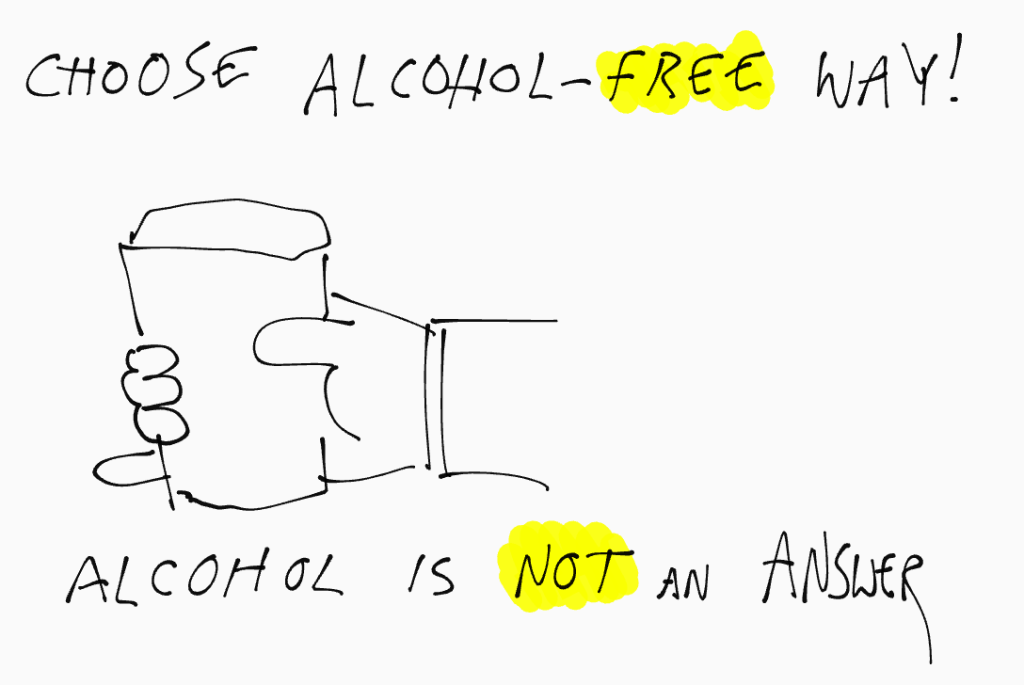 CHOOSE ALCOHOL-FREE WAY!
ALCOHOL IS NOT AN ANSWER